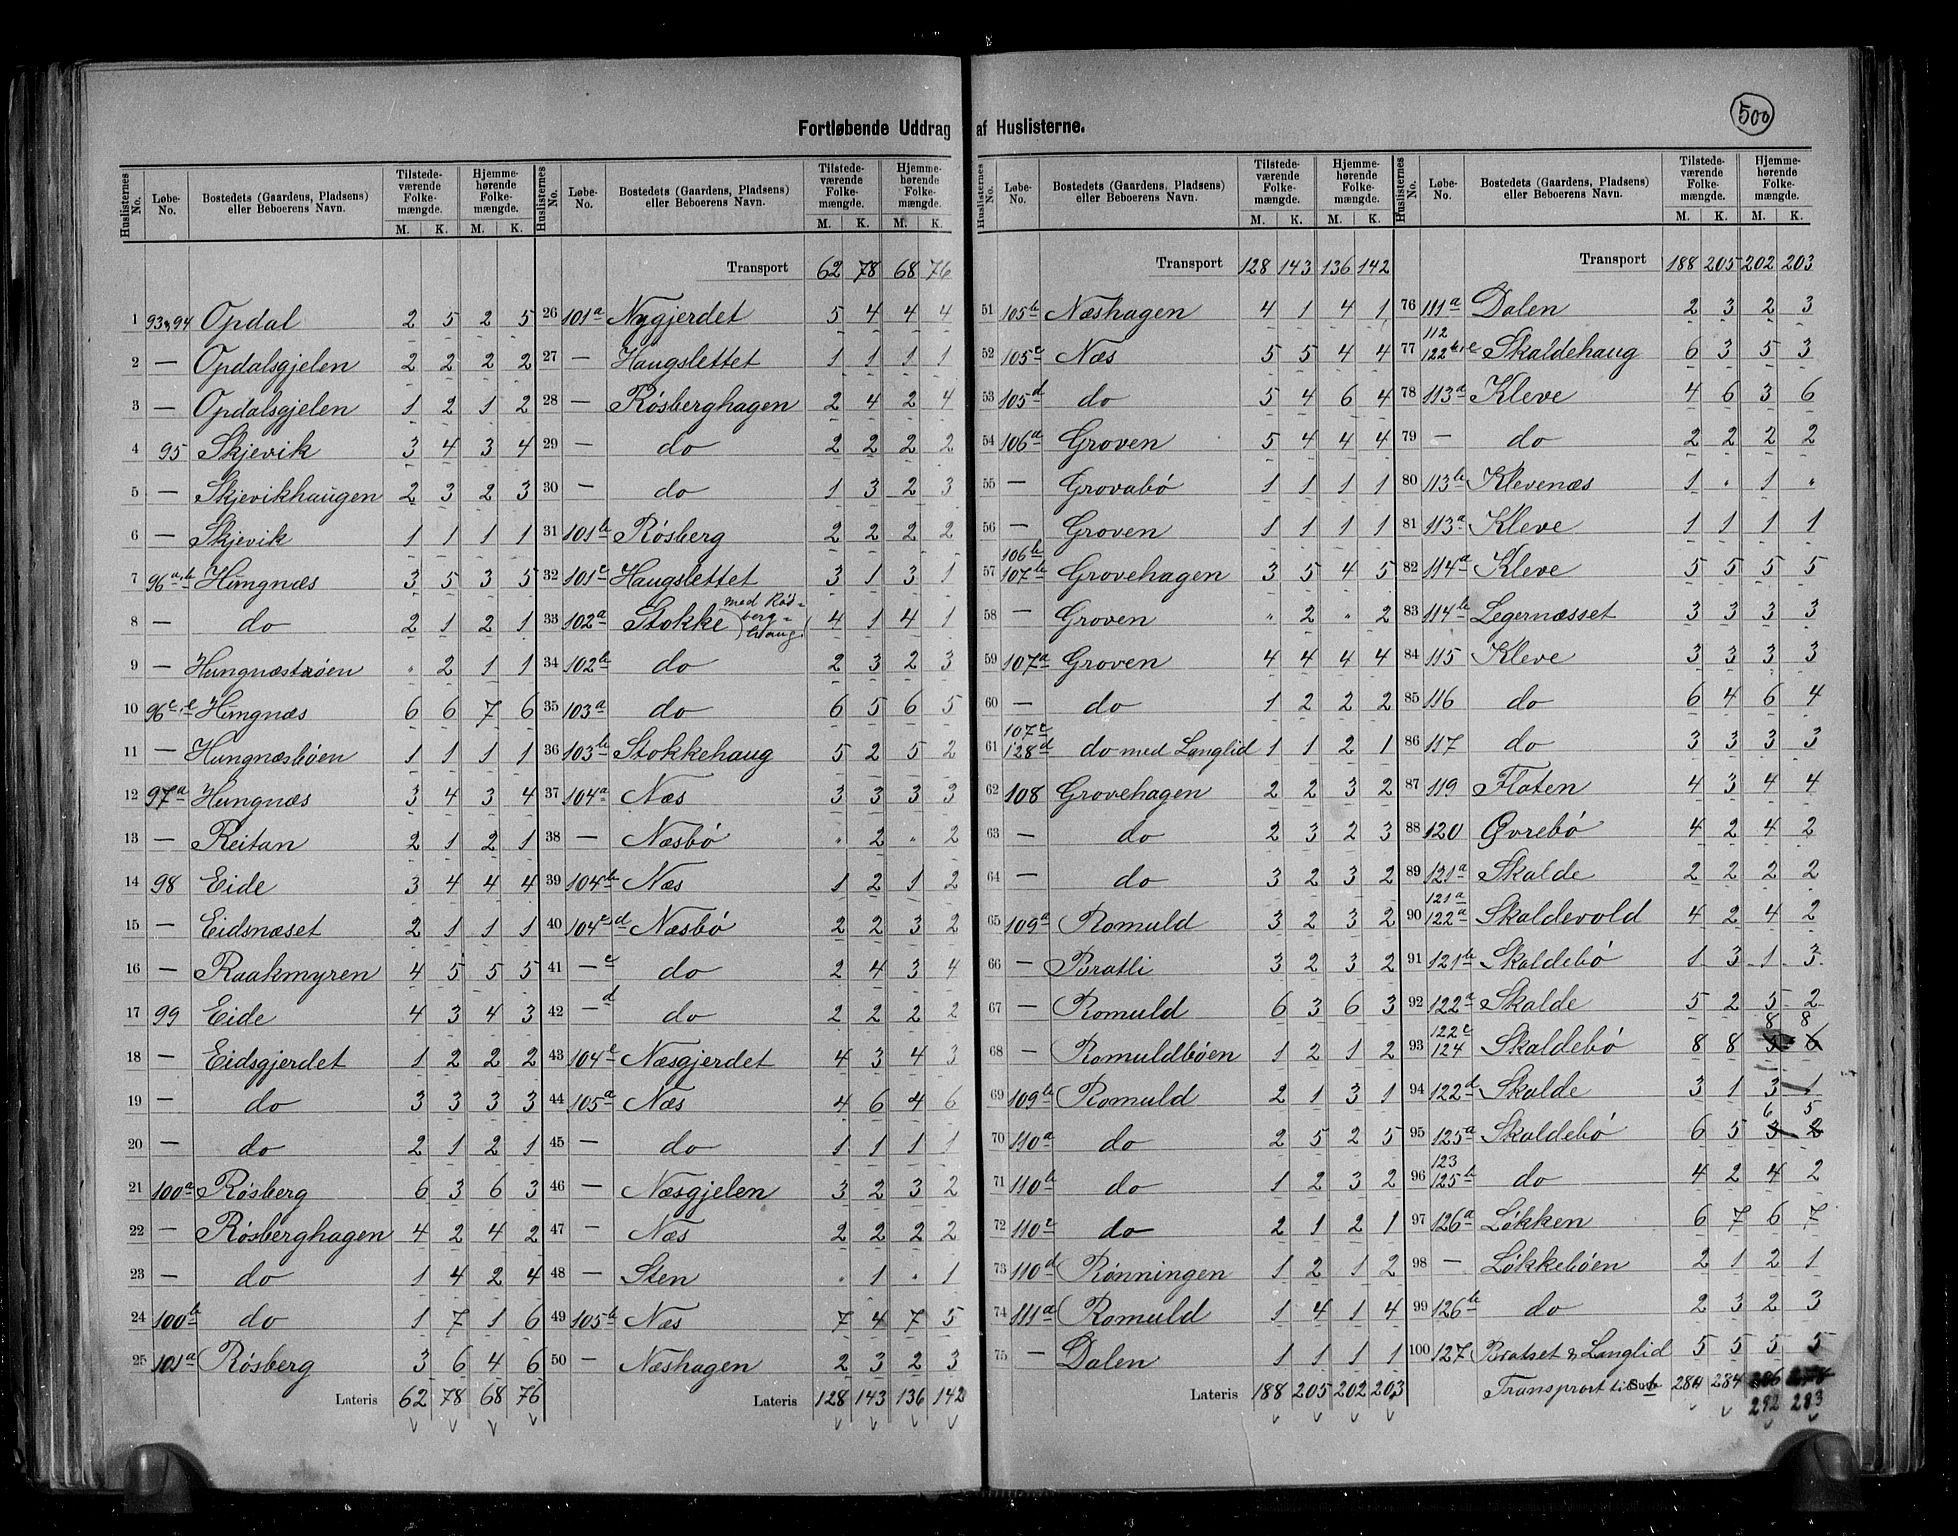 500
Fortløbende Uddrag af Huslisterne.
Huslisternes No. Løbe-No. Bostedets (Gaardens, Pladsens) eller Beboerens Navn. Tilstedeværende Folkemængde. M. K. Hjemmehørende Folkemængde. M. K.
1 93,94 Opdal 2 5 2 5
2 — Opdalsgjelen 2 2 2 2
3 — Opdalsgjelen 1 2 1 2
4 95 Skjevik 3 4 3 4
5 — Skjevikhaugen 2 3 2 3
6 — Skjevik 1 1 1 1
7 96a,b Hungnæs 3 5 3 5
8 — do 2 1 2 1
9 — Hungnæstrøen " 2 1 1
10 96c,e Hungnæs 6 6 7 6
11 — Hungnæsbøen 1 1 1 1
12 97a Hungnæs 3 4 3 4
13 — Reitan 2 1 2 1
14 98 Eide 3 4 4 4
15 — Eidsnæset 2 1 1 1
16 — Raakmyren 4 5 5 5
17 99 Eide 4 3 4 3
18 — Eidsgjerdet 1 2 2 2
19 — do 3 3 3 3
20 — do 2 1 2 1
21 100a Røsberg 6 3 6 3
22 — Røsberghagen 4 2 4 2
23 — do 1 4 2 4
24 100b do 1 7 1 6
25 101a Røsberg 3 6 4 6
Lateris 62 78 68 76
Huslisternes No. Løbe-No. Bostedets (Gaardens, Pladsens) eller Beboerens Navn. Tilstedeværende Folkemængde. M. K. Hjemmehørende Folkemængde. M. K.
Transport 62 78 68 76
26 101a Nygjerdet 5 4 4 4
27 — Haugslettet 1 1 1 1
28 — Røsberghagen 2 4 2 4
29 — do 2 2 2 2
30 — do 1 3 2 3
31 101b Røsberg 2 2 2 2
32 101c Haugslettet 3 1 3 1
33 102a Stokke med Røsberghaug 4 1 4 1
34 102b do 2 3 2 3
35 103a do 6 5 6 5
36 103b Stokkehaug 5 2 5 2
37 104a Næs 3 3 3 3
38 — Næsbø " 2 " 2
39 104b Næs 1 2 1 2
40 104c,d Næsbø 2 2 3 2
41 —c do 2 4 3 4
42 —d do 2 2 2 2
43 104e Næsgjerdet 4 3 4 3
44 105a Næs 4 6 4 6
45 — do 1 1 1 1
46 — Næsgjelen 3 2 3 2
47 — Næs 2 2 2 2
48 — Sten " 1 " 1
49 105b Næs 7 4 7 5
50 — Næshagen 2 3 2 3
Lateris 128 143 136 142
Huslisternes No. Løbe-No. Bostedets (Gaardens, Pladsens) eller Beboerens Navn. Tilstedeværende Folkemængde. M. K. Hjemmehørende Folkemængde. M. K.
Transport 128 143 136 142
51 105b Næshagen 4 1 4 1
52 105c Næs 5 5 4 4
53 105d do 5 4 6 4
54 106a Groven 5 4 4 4
55 — Grovabø 1 1 1 1
56 — Groven 1 1 1 1
57 106b 107b Grovehagen 3 5 4 5
58 — Groven " 2 " 2
59 107a Groven 4 4 4 4
60 — do 1 2 2 2
61 107c 128d do med Langlid 1 1 2 1
62 108 Grovehagen 2 2 3 2
63 — do 2 3 2 3
64 — do 3 2 3 2
65 109a Romuld 3 2 3 2
66 — Bratli 3 2 3 2
67 — Romuld 6 3 6 3
68 — Romuldbøen 1 2 1 2
69 109b Romuld 2 1 3 1
70 110a do 2 5 2 5
71 110b do 1 2 3 2
72 110c do 2 1 2 1
73 110d Rønningen 1 2 1 2
74 111a Romuld 1 4 1 4
75 — Dalen 1 1 1 1
Lateris 188 205 202 203
Huslisternes No. Løbe-No. Bostedets (Gaardens, Pladsens) eller Beboerens Navn. Tilstedeværende Folkemængde. M. K. Hjemmehørende Folkemængde. M. K.
Transport 188 205 202 203
76 111a Dalen 2 3 2 3
77 112 122b,c Skaldehaug 6 3 5 3
78 113a Kleve 4 6 3 6
79 — do 2 2 2 2
80 113b Klevenæs 1 " 1 "
81 113a Kleve 1 1 1 1
82 114a Kleve 5 5 5 5
83 114b Legernæsset 3 3 3 3
84 115 Kleve 3 3 3 3
85 116 do 6 4 6 4
86 117 do 3 3 3 3
87 119 Flaten 4 3 4 4
88 120 Øvrebø 4 2 4 2
89 121a Skalde 2 2 2 2
90 121a 122a Skaldevold 4 2 4 2
91 121b Skaldebø 1 3 1 3
92 122a Skalde 5 2 5 2
93 122c 124 Skaldebø 8 8 8 8
94 122d Skalde 3 1 3 1
95 125a Skaldebø 6 5 6 5 3 2
96 123 125b do 4 2 4 2
97 126a Løkken 6 7 6 7
98 — Løkkebøen 2 1 2 1
99 126b do 2 3 2 3
100 127 Bratset & Langlid 5 5 5 5
Transport til 284 284
292 283